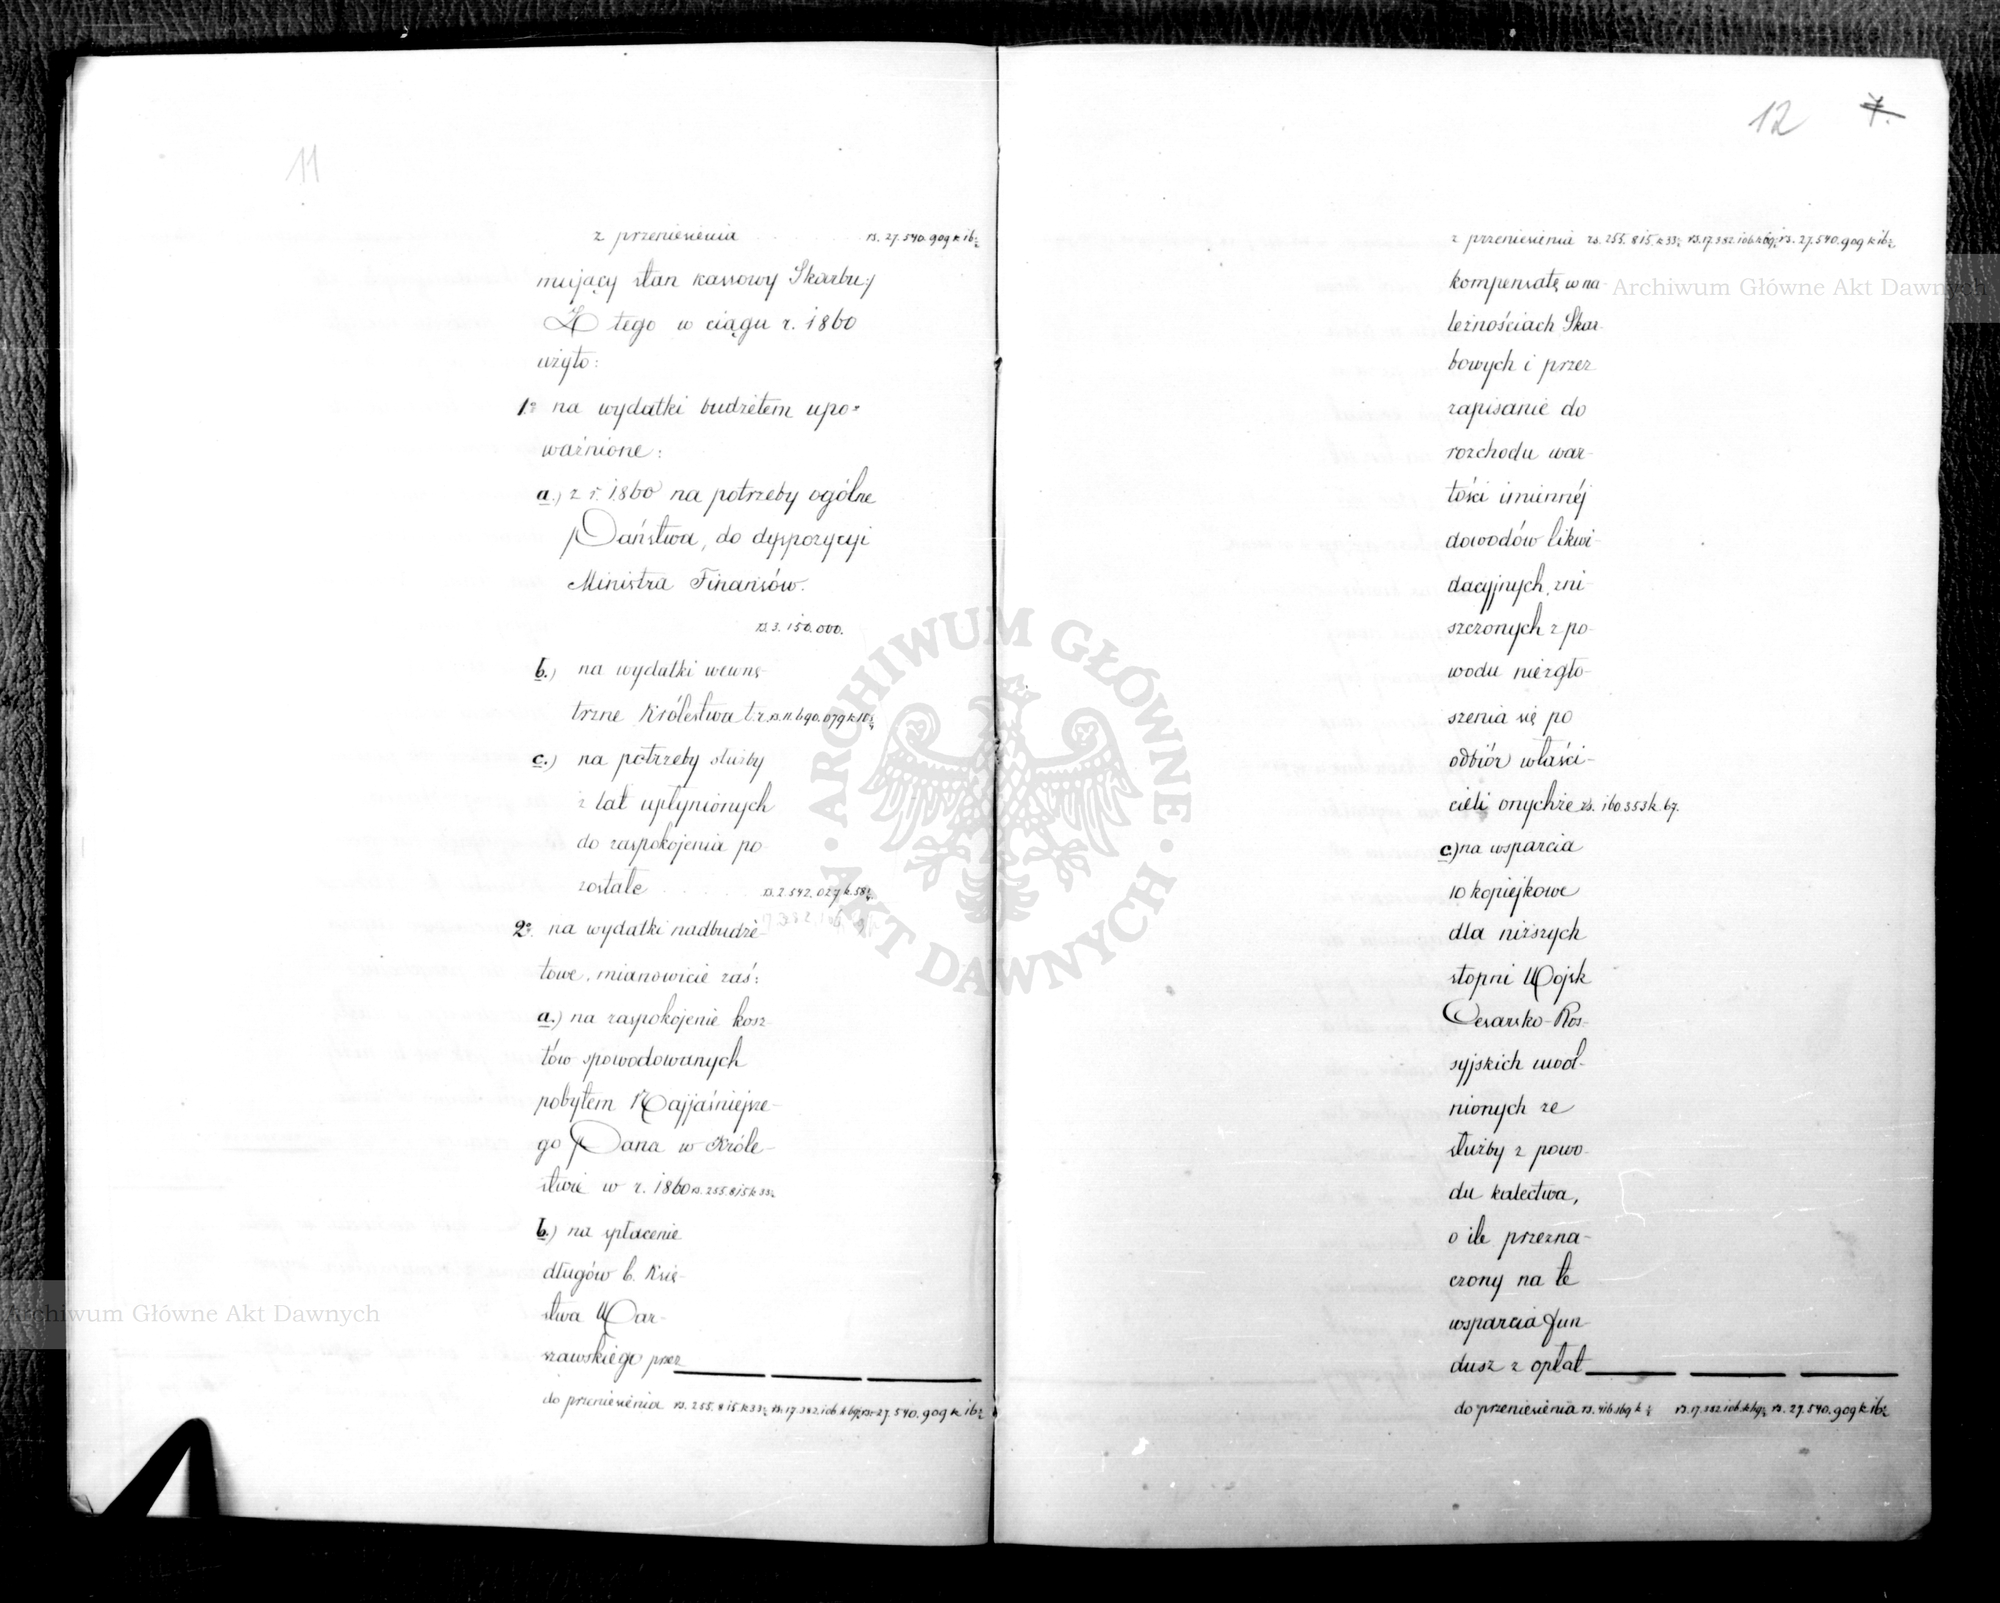 11
z przeniesienia . . . . . . rs. 27.540.909 k 16½
mujący stan kassowy Skarbu:/
Z tego w ciągu r. 1860
użyto:
1º na wydatki budżetem upo-
ważnione:
a.) z r. 1860 na potrzeby ogólne
Państwa, do dyspozycyi
Ministra Finansów.
rs. 3.150.000.
b.) na wydatki wewnę-
trzne Królestwa t.r. rs. 11.690.079 k 10¾
c.) na potrzeby służby
z lat upłynionych
do zaspokojenia po-
zostałe . . . . . rs. 2.542.027 k. 58¾
17.382.106.69½
2º. na wydatki nadbudże-
towe, mianowicie zaś:
a.) na zaspokojenie kosz-
tów spowodowanych
pobytem Najjaśniejsze-
go Pana w Króle-
stwie w r. 1860 rs. 255.815 k 33½
b.) na spłacenie
długów b. Księ-
stwa War-
szawskiego przez
do przeniesienia rs. 255.815 k 33½ rs. 17.382.106 k 69½ rs. 27.540.909 k 16½
12 7.
z przeniesienia rs. 255.815. k 33½ rs. 17.382.106 k 69½ rs. 27.540.909 k 16½
kompensatę w na-
leżnościach Skar-
bowych i przez
zapisanie do
rozchodu war-
tości imiennéj
dowodów likwi-
dacyjnych, zni-
szczonych z po-
wodu niezgło-
szenia się po
odbiór właści-
cieli onychże rs. 160.353 k. 67.
c.) na wsparcia
10 kopiejkowe
dla niższych
stopni Wojsk
Cesarsko-Ros-
syjskich uwol-
nionych ze
służby z powo-
du kalectwa,
o ile przezna-
czony na te
wsparcia fun-
dusz z opłat
do przeniesienia rs. 416.169 k ½ rs. 17.382.106. k 69½ rs. 27.540.909 k 16½
Archiwum Główne Akt Dawnych
Archiwum Główne Akt Dawnych
ARCHIWUM GŁÓWNE AKT DAWNYCH